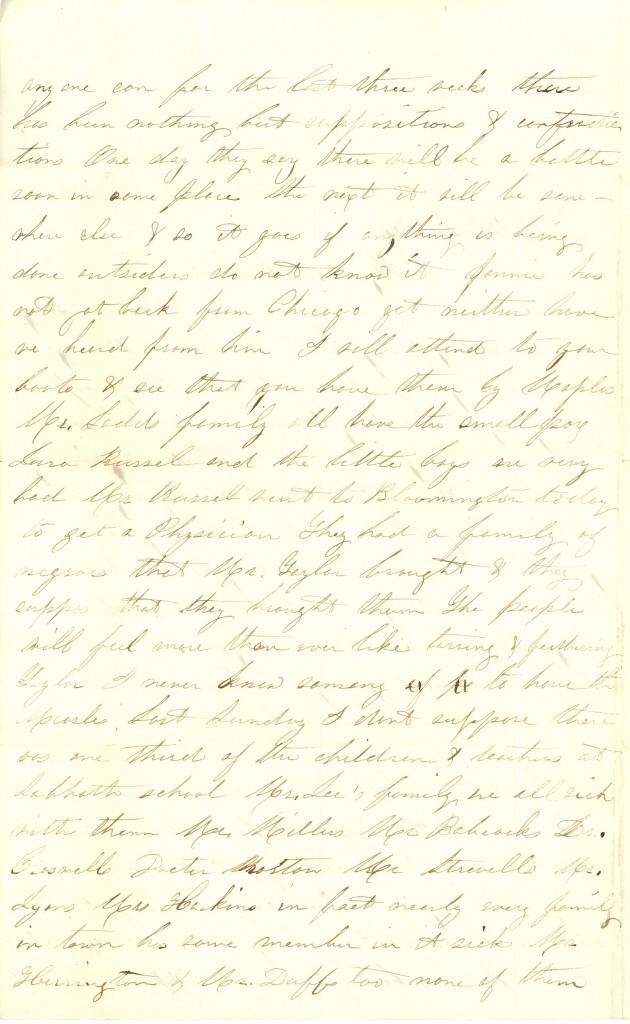 any one can for the last three weeks there
has been nothing but suppositions &
tions One day they say there will be a battle
soon in some place the next it will be some-
where else & so it goes if anything is being
done outsiders do not know it Jonnie has
not got back from Chicago yet neither have
we heard from him I will attend to your
boots & see that you have them by
Mr. Ladds family all have the small pox
Russel and the little boys are very
bad Mr Russel went to Bloomington to day
to get a Physician They had a family of
negroes that Mr. Taylor brought & they
suppos that they brought them The people
will feel more than ever like tarring & feathering
Taylor I never knew so many to have the
Measles. Last Sunday I dont suppose there
was one third of the children & teachers at
Sabbath school Mr. Lee's family are all sick
with them Mr. Millers Mr Babcocks Dr.
Doctor Mr Strevells Mr.
Lyons Mrs Haskins in fact nearly every family
in town has some member in it sick Mr
Herrington & Mr. Duffs too none of them